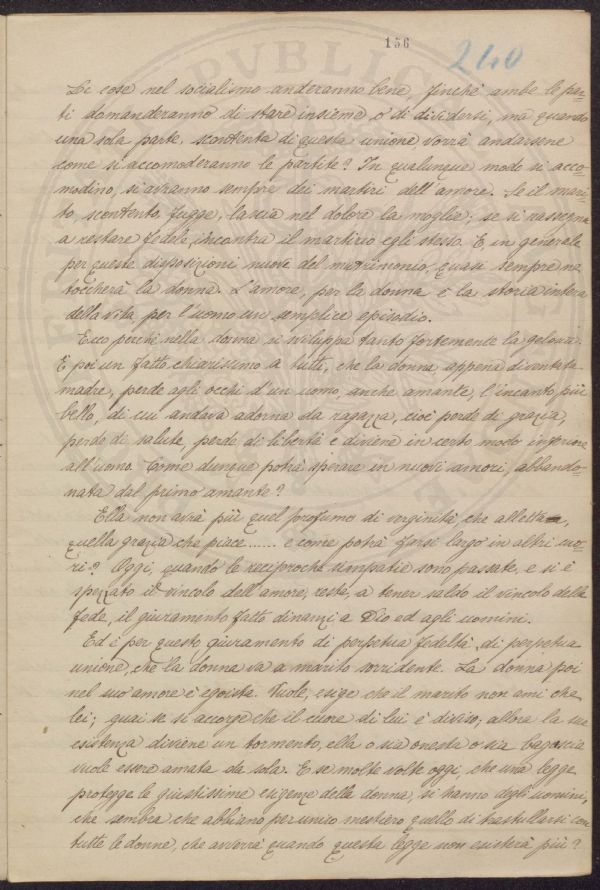 156
240
Le cose nel socialismo anderanno bene, finchè ambe le par=
ti domanderanno di stare insieme o di dividersi, ma quando
una sola parte, scontenta di questa unione vorrà andarsene
come si accomoderanno le partite? In qualunque modo si acco=
modino, si avranno sempre dei martiri dell'amore. Se il mari=
to, scontento, fugge, lascia nel dolore la moglie; se si rassegna
a restare fedele, incontra il martirio egli stesso. E in generale
per queste disposizioni nuove del matrimonio, quasi sempre ne
toccherà la donna. L'amore, per la donna è la storia intera
della vita per l'uomo un semplice episodio.
Ecco perchè nella donna si sviluppa tanto fortemente la gelosia.
E poi un fatto chiarissimo a tutti, che la donna appena diventata
madre, perde agli occhi d'un uomo, anche amante, l'incanto più
bello, di cui andava adorna da ragazza, cioè perde di grazia,
perde di salute, perde di libertà e diviene in certo modo inferiore
all'uomo. Come dunque potrà sperare in nuovi amori, abbando=
nata dal primo amante?
Ella non avrà più quel profumo di verginità, che alletta,
quella grazia che piace...... e come potrà farsi largo in altri cuo=
ri? Oggi, quando le reciproche simpatie sono passate, e si è
spezzato il vincolo dell'amore, resta, a tener saldo il vincolo della
fede, il giuramento fatto dinanzi a Dio ed agli uomini.
Ed è per questo giuramento di perpetua fedeltà, di perpetua
unione, che la donna va a marito sorridente. La donna poi
nel suo amore è egoista. Vuole, esige che il marito non ami che
lei; guai se si accorge che il cuore di lui è diviso; allora la sua
esistenza diviene un tormento, ella o sia onesta o sia bagascia
vuole essere amata da sola. E se molte volte oggi, che una legge
protegge le giustissime esigenze della donna, si hanno degli uomini,
che sembra che abbiano per unico mestiere quello di trastullarsi con
tutte le donne, che avverrà quando questa legge non esisterà più?